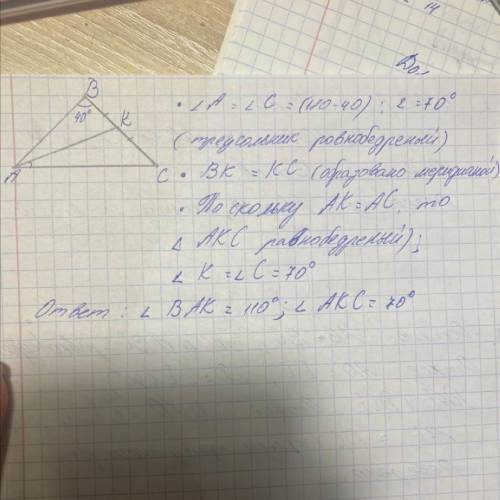 14
До
B
40°
K
A
C
• ∠A = ∠C = (180-40) : 2 = 70°
(треугольник равнобедреный)
• BK = KC (образовано медианой)
• Поскольку AK = AC, то
∠ AKC равнобедреный);
∠ K = ∠C = 70°
Ответ : ∠ BAK = 110°; ∠ AKC = 70°